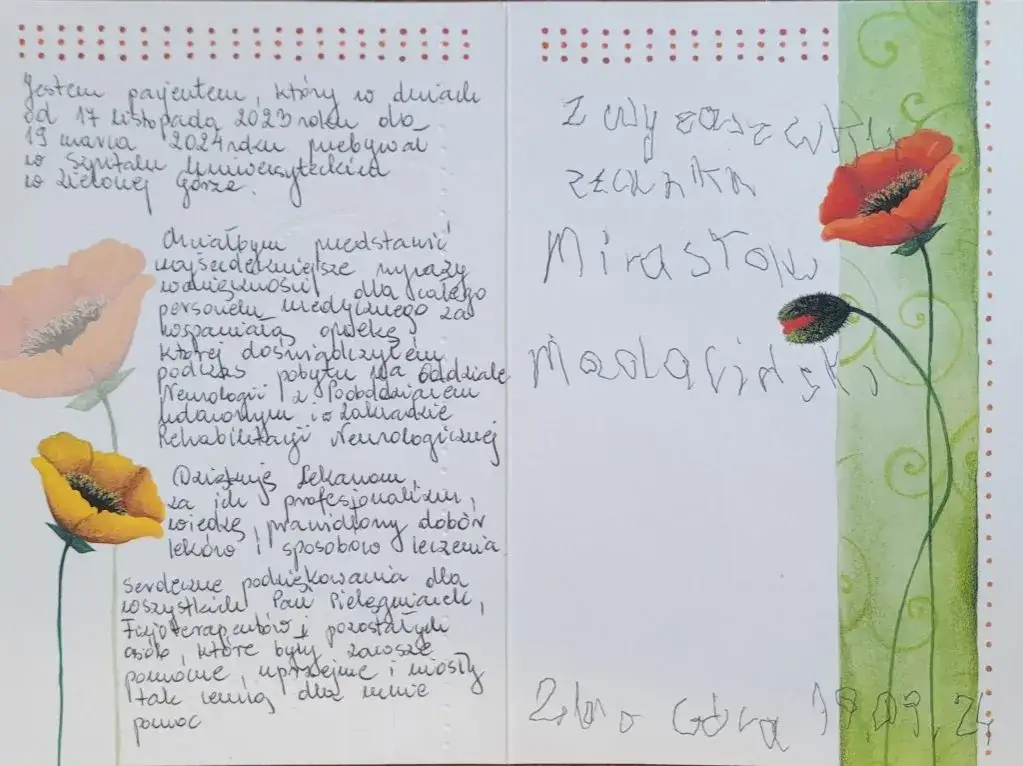 Jestem pacjentem, który w dniach
od 17 listopada 2023 roku do
19 marca 2024 roku przebywał
w Szpitalu Uniwersyteckim
w Zielonej Górze.
Chciałbym przedstawić
najserdeczniejsze wyrazy
wdzięczności dla całego
personelu medycznego za
wspaniałą opiekę,
której doświadczyłem
podczas pobytu na Oddziale
Neurologii z Pododdziałem
udarowym i w Zakładzie
Rehabilitacji Neurologicznej
Dziękuję Lekarzom,
za ich profesjonalizm,
wiedzę, prawidłowy dobór
leków i sposobów leczenia
Serdeczne podziękowania dla
wszystkich Pań Pielęgniarek,
Fizjoterapeutów i pozostałych
osób, które były zawsze
pomocne, uprzejme i niosły
tak cenną dla mnie
pomoc
Z wyrazami
Mirosław
Góra